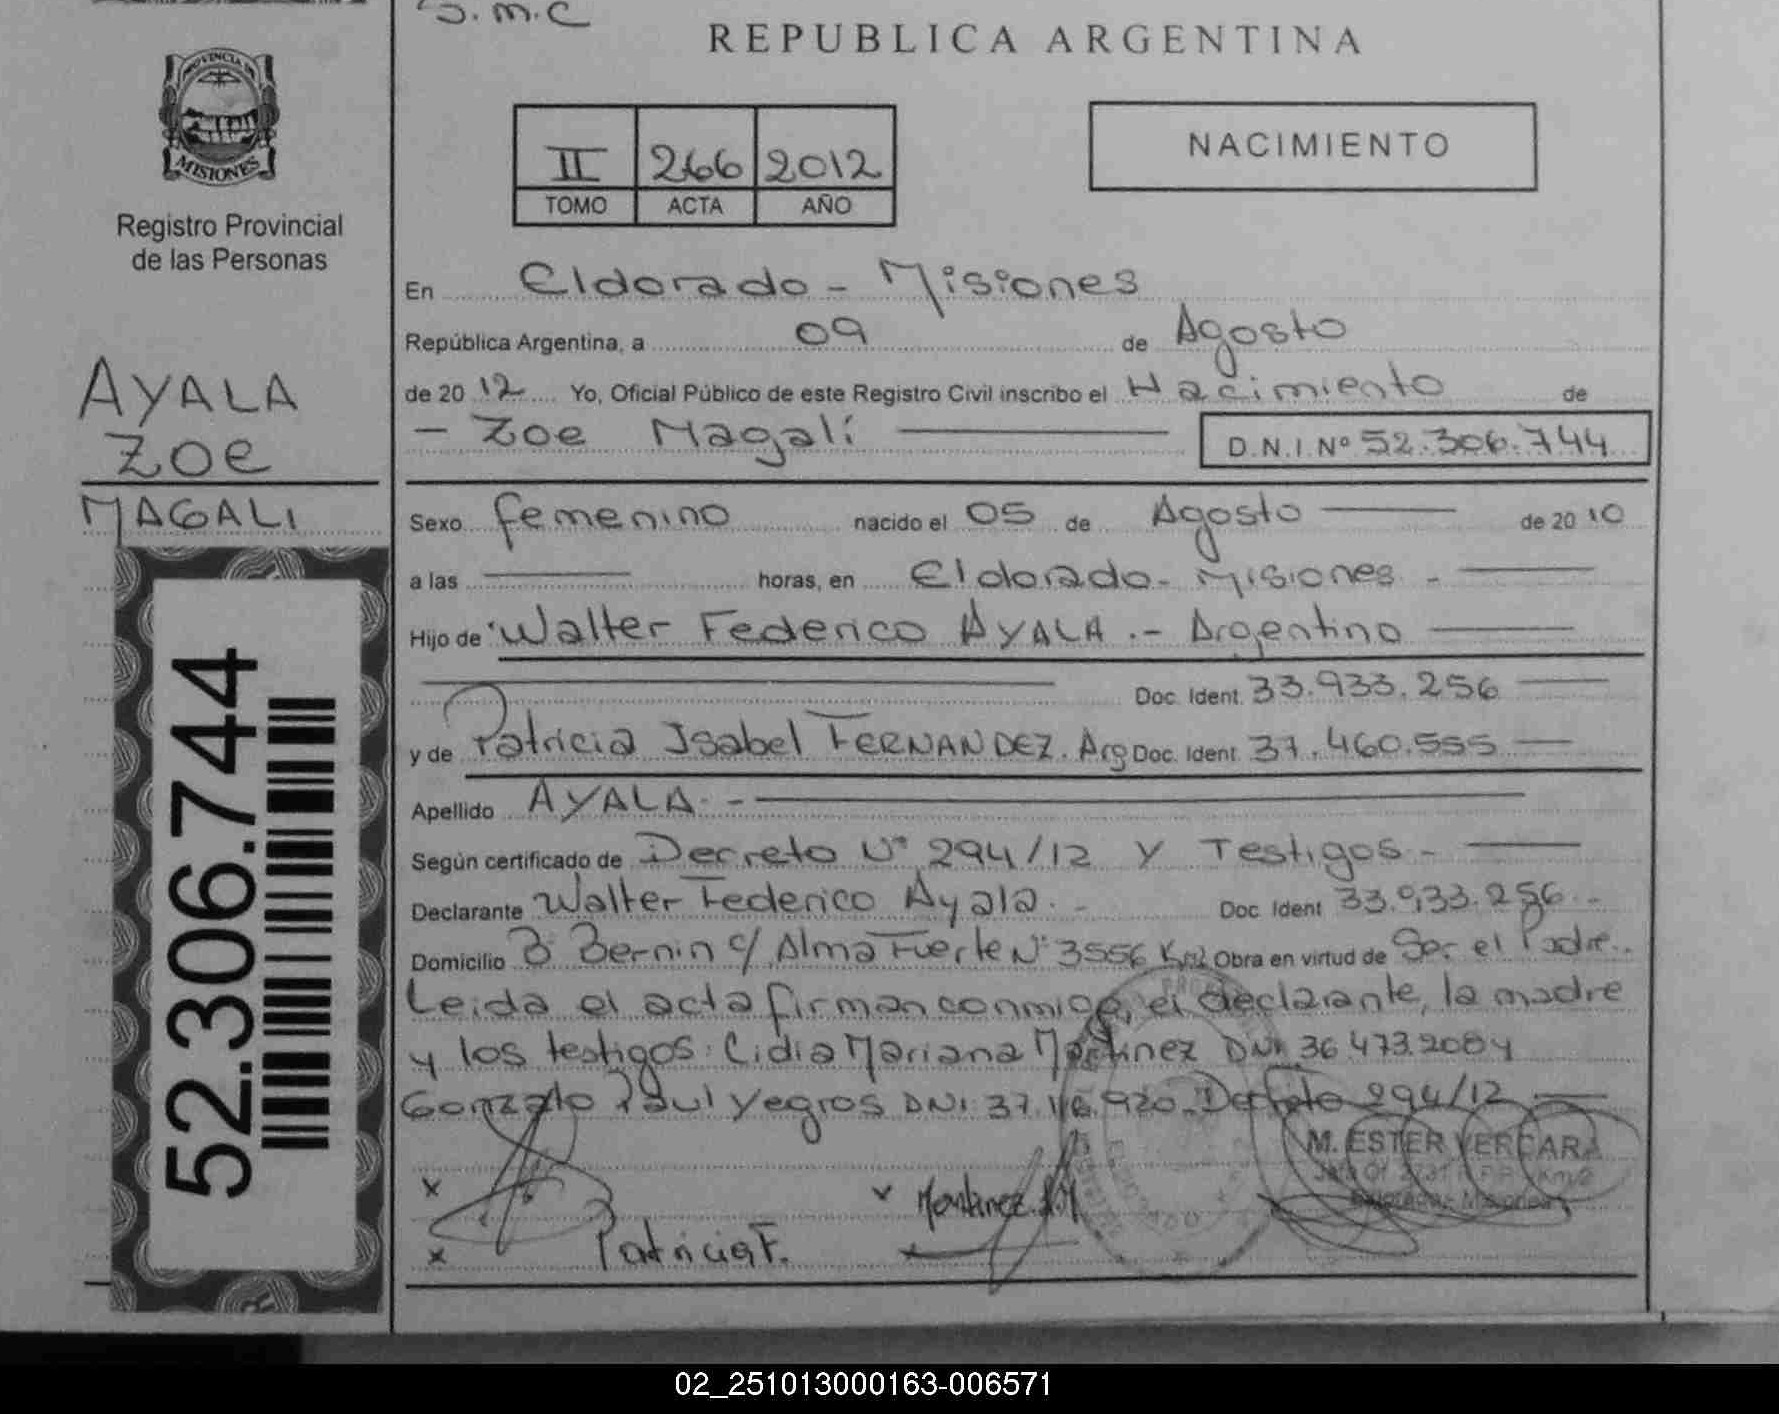 S.M.C
REPUBLICA ARGENTINA
PROVINCIA DE
MISIONES
Registro Provincial
de las Personas
II 266 2012
TOMO ACTA AÑO
NACIMIENTO
AYALA
ZOE
MAGALI
52.306.744
En Eldorado - Misiones
República Argentina, a 09 de Agosto
de 20 12 Yo, Oficial Público de este Registro Civil inscribo el Nacimiento de
- Zoe Magalí D.N.I. Nº 52.306.744
Sexo femenino nacido el 05 de Agosto de 20 10
a las horas, en Eldorado - Misiones -
Hijo de Walter Federico AYALA .- Argentino
Doc. Ident. 33.933.256
y de Patricia Isabel FERNANDEZ. Arg Doc. Ident. 37.460.555
Apellido AYALA -
Según certificado de Decreto Nº 294/12 y Testigos -
Declarante Walter Federico Ayala. - Doc. Ident 33.933.256 -
Domicilio Bº Bernin c/ Alma Fuerte Nº 3556 Km2 Obra en virtud de Ser el Padre.
Leida el acta firman conmigo, el declarante, la madre
y los testigos: Lidia Mariana Martinez DNI 36 473.2004
Gonzalo Raul Yegros DNI 37.116.920. Decreto 294/12
M. ESTER VERGARA
Eldorado - Misiones
x v Martinez
x Patricia F.
02_251013000163-006571